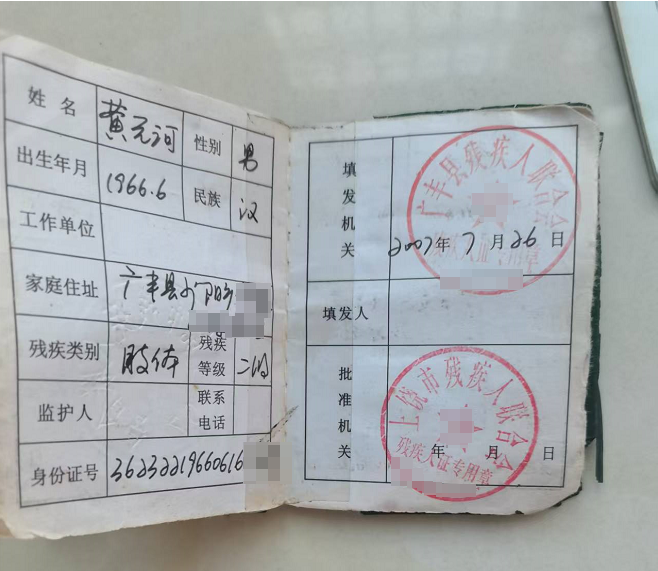 姓名 黄元河 性别 男
出生年月 1966.6 民族 汉
工作单位
家庭住址 广丰县
残疾类别 肢体 残疾等级 二级
监护人 联系电话
身份证号 36232219660616
填发机关 广丰县残疾人联合会 残疾人证专用章
2007年7月26日
填发人
批准机关 上饶市残疾人联合会 残疾人证专用章
年 月 日